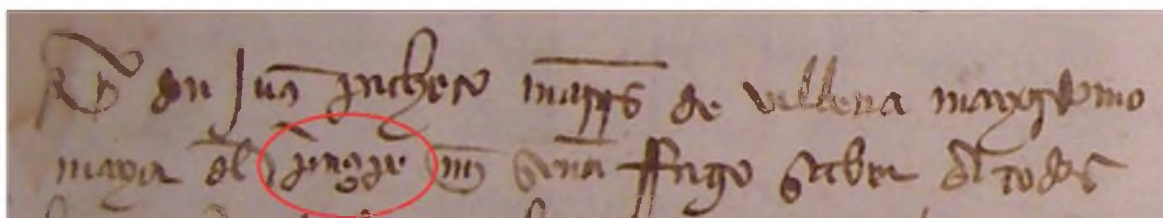 Yo don Juan pacheco marqs de villena mayordomo
mayor del prinçipe mi señor ffago saber a todos